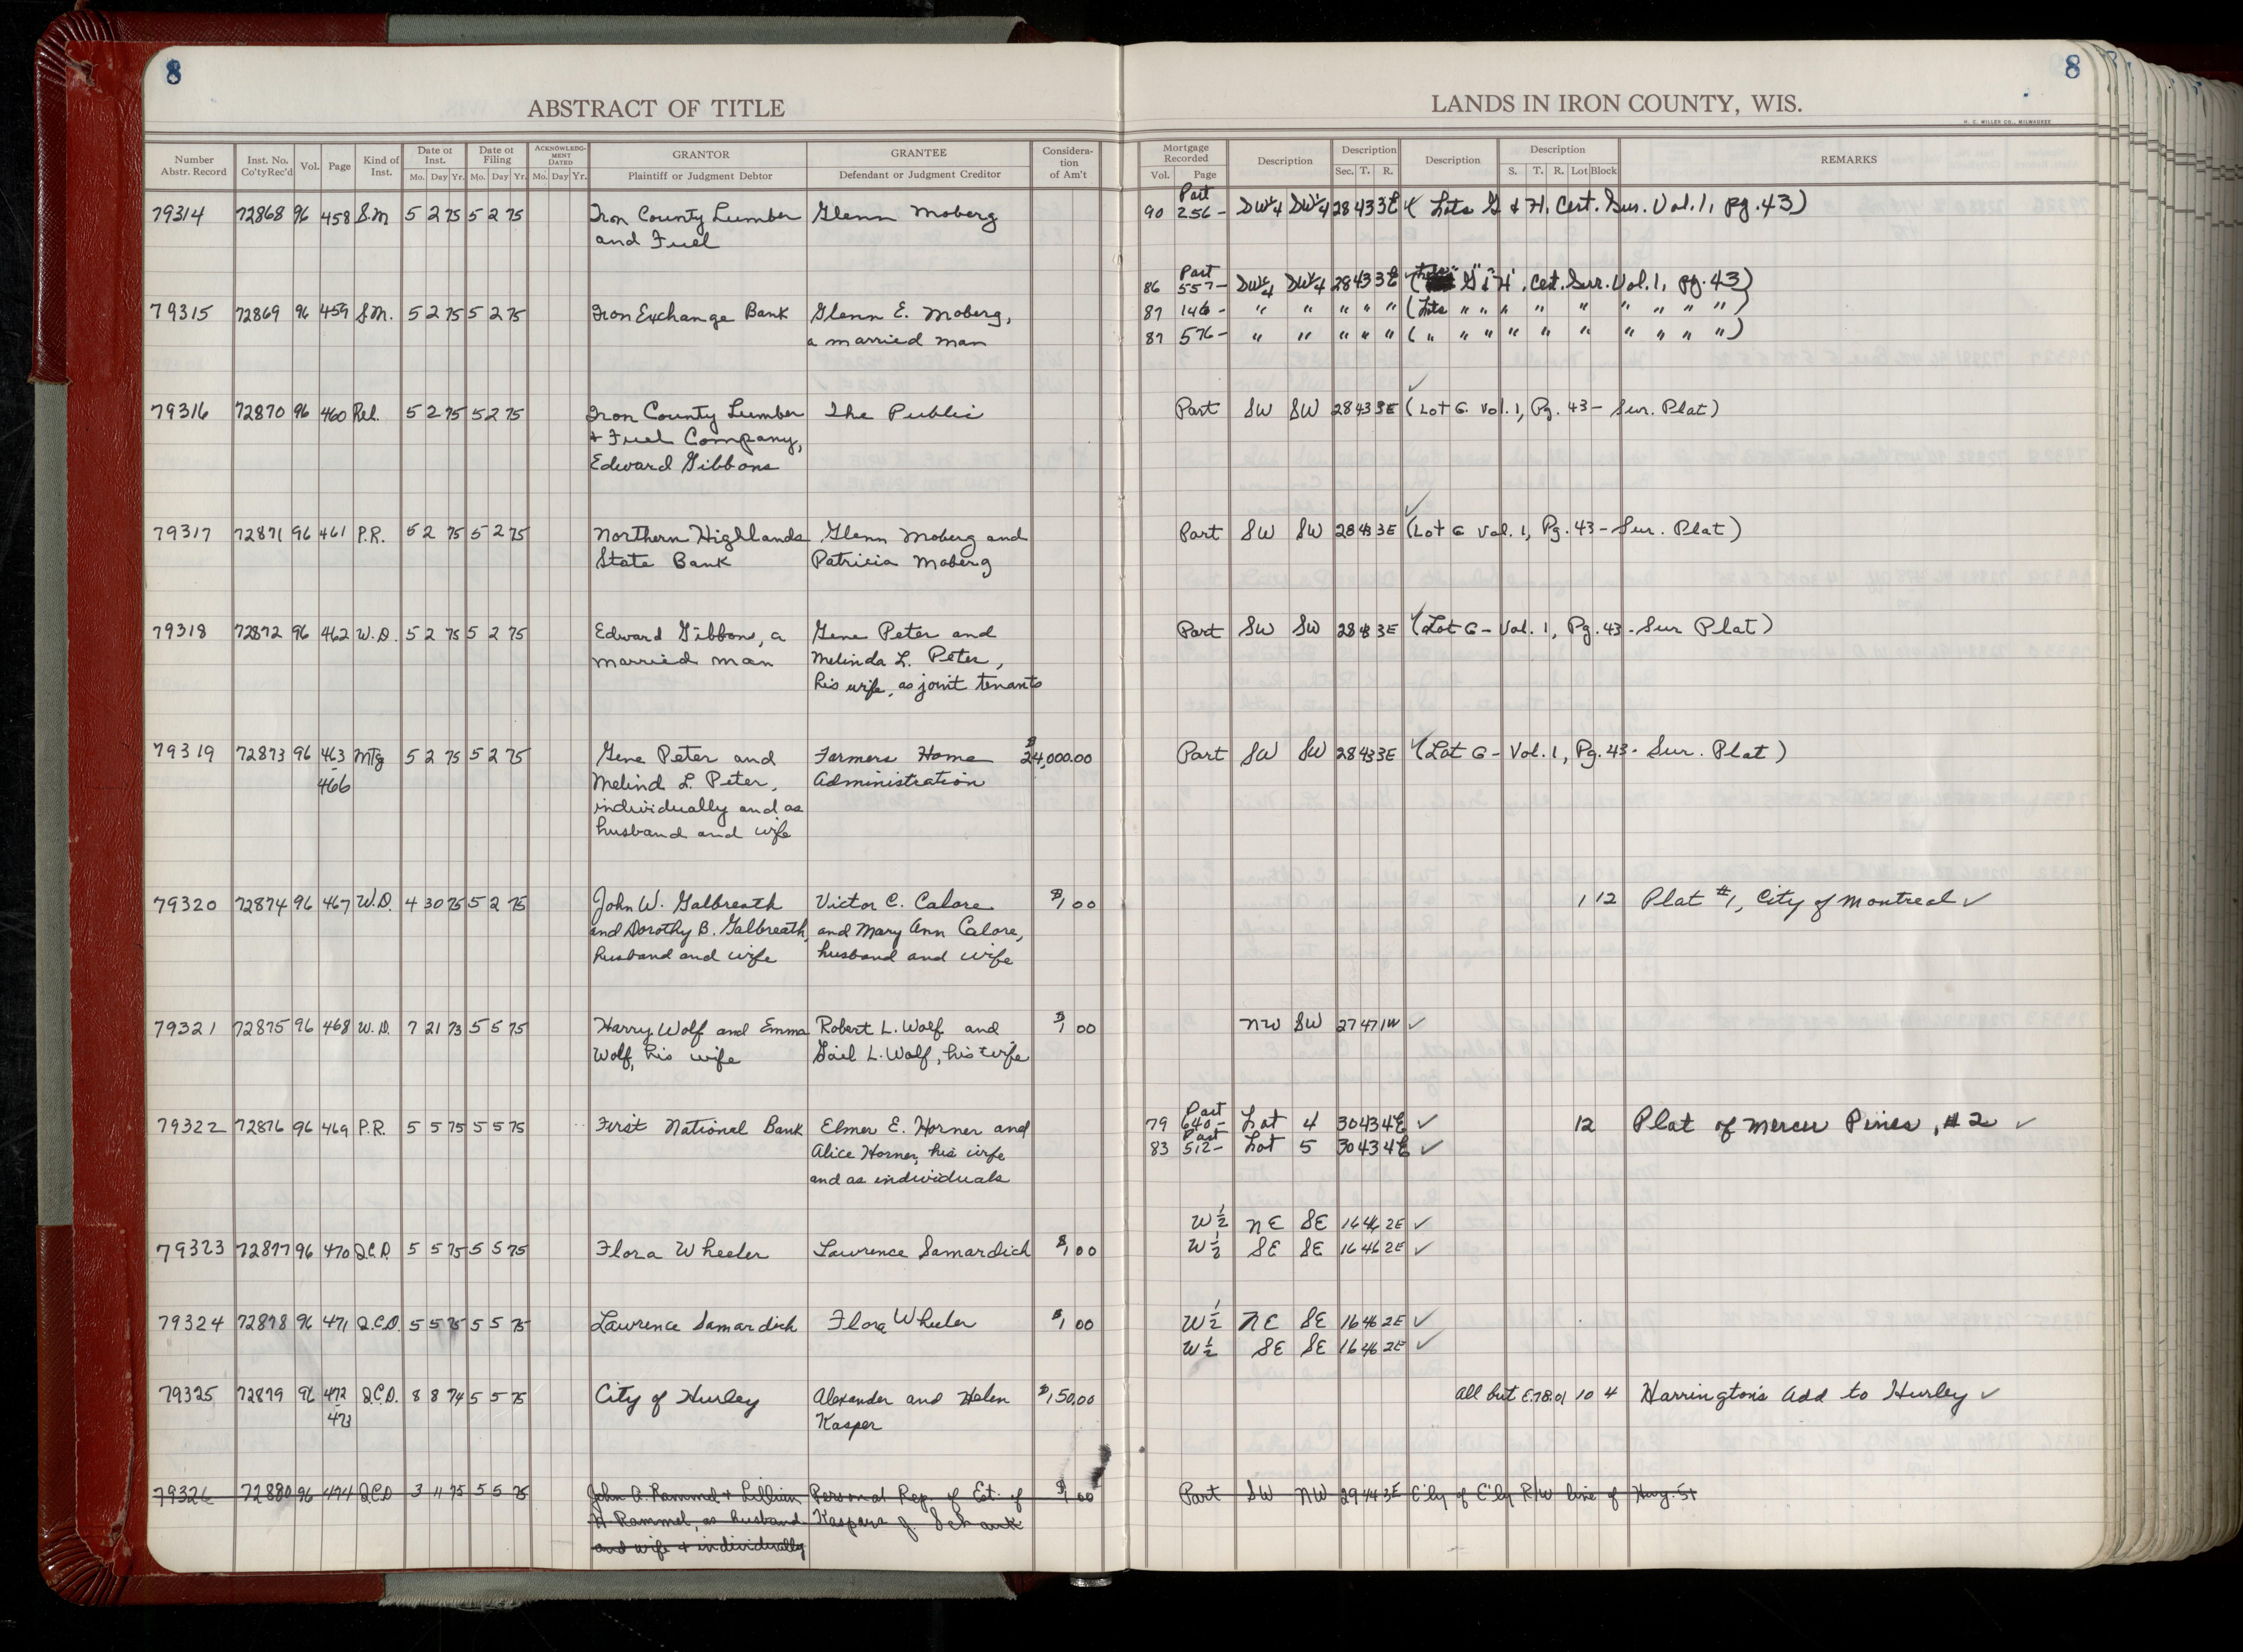 8
8
ABSTRACT OF TITLE
LANDS IN IRON COUNTY, WIS.
H. C. MILLER CO., MILWAUKEE
Number Abstr. Record Inst. No. Co'ty Rec'd Vol. Page Kind of Inst. Date of Inst. Mo. Day Yr. Date of Filing Mo. Day Yr. ACKNOWLEDGMENT DATED Mo. Day Yr. GRANTOR Plaintiff or Judgment Debtor GRANTEE Defendant or Judgment Creditor Consideration of Am't Mortgage Recorded Vol. Page Description Description Sec. T. R. Description Description S. T. R. Lot Block REMARKS
Part
79314 72868 96 458 S.M 5 2 75 5 2 75 Iron County Lumber Glenn Moberg 90 256- SW¼ SW¼ 28 43 3E (Lots G & H, Cert. Sur. Vol. 1, pg. 43)
and Fuel
Part
86 557- SW¼ SW¼ 28 43 3E ( G & H, Cert. Sur. Vol. 1, pg. 43)
79315 72869 96 459 S.M. 5 2 75 5 2 75 Iron Exchange Bank Glenn E. Moberg, 87 146- " " " " " (Lots " " " " " " " " ")
a married man 87 576- " " " " " ( " " " " " " " " " ")
79316 72870 96 460 Rel. 5 2 75 5 2 75 Iron County Lumber The Public Part SW SW 28 43 3E (Lot G Vol. 1, Pg. 43- Sur. Plat)
& Fuel Company,
Edward Gibbons
79317 72871 96 461 P.R. 5 2 75 5 2 75 Northern Highlands Glenn Moberg and Part SW SW 28 43 3E (Lot G Vol. 1, Pg. 43- Sur. Plat)
State Bank Patricia Moberg
79318 72872 96 462 W.D. 5 2 75 5 2 75 Edward Gibbons, a Gene Peter and Part SW SW 28 43 3E (Lot G- Vol. 1, Pg. 43- Sur Plat)
married man Melinda L. Peter,
his wife, as joint tenants
79319 72873 96 463 Mtg 5 2 75 5 2 75 Gene Peter and Farmers Home $24,000.00 Part SW SW 28 43 3E (Lot G- Vol. 1, Pg. 43- Sur. Plat)
-466 Melind L. Peter, Administration
individually and as
husband and wife
79320 72874 96 467 W.D. 4 30 75 5 2 75 John W. Galbreath Victor C. Calore $1 00 1 12 Plat #1, City of Montreal ✓
and Dorothy B. Galbreath, and Mary Ann Calore,
husband and wife husband and wife
79321 72875 96 468 W.D. 7 21 73 5 5 75 Harry Wolf and Emma Robert L. Wolf and $1 00 NW SW 27 47 1W ✓
Wolf, his wife Gail L. Wolf, his wife
Part
79322 72876 96 469 P.R. 5 5 75 5 5 75 First National Bank Elmer E. Horner and 79 640- Lot 4 30 43 4E ✓ 12 Plat of Mercer Pines, #2 ✓
Part
Alice Horner, his wife 83 512- Lot 5 30 43 4E ✓
and as individuals
W½ NE SE 16 46 2E ✓
79323 72877 96 470 Q.C.D. 5 5 75 5 5 75 Flora Wheeler Lawrence Samardich $1 00 W½ SE SE 16 46 2E ✓
79324 72878 96 471 Q.C.D. 5 5 75 5 5 75 Lawrence Samardich Flora Wheeler $1 00 W½ NE SE 16 46 2E ✓
W½ SE SE 16 46 2E ✓
79325 72879 96 472 Q.C.D. 8 8 74 5 5 75 City of Hurley Alexander and Helen $150.00 All but E.78.01 10 4 Harrington's Add to Hurley ✓
-473 Kasper
79326 72880 96 474 Q.C.D 3 11 75 5 5 75 John A. Rammel & Lillian Personal Rep. of Est. of $1 00 Part SW NW 29 44 3E E'ly of E'ly R/W line of Hwy. 51
H. Rammel, as husband Kaspara J. Schauk
and wife & individually